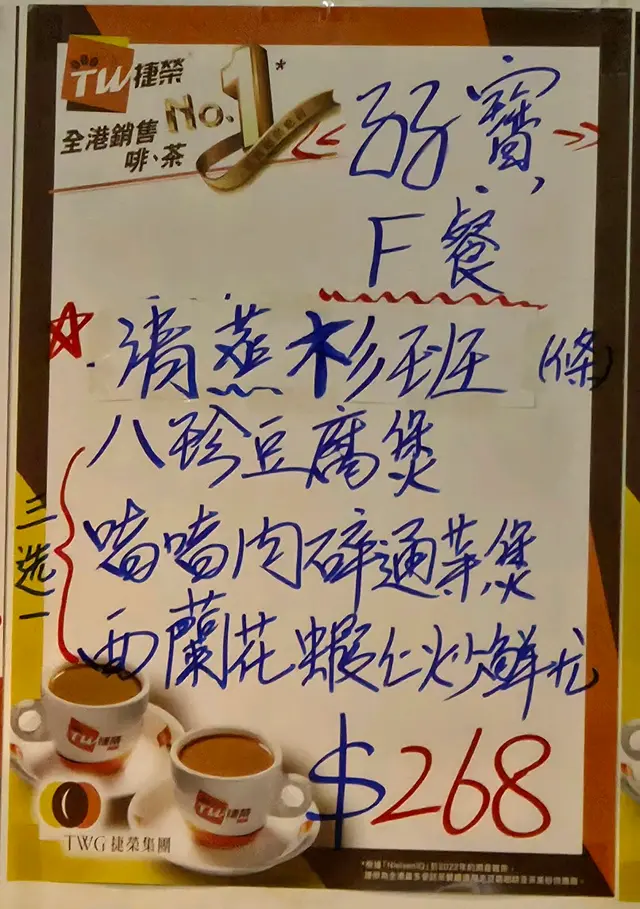 TW 捷榮
No.1*
全港銷售
啡、茶
弱寶
F餐
清蒸杉班(條)
三选一
八珍豆腐煲
啫啫肉碎通菜煲
西蘭花蝦仁炒鮮尤
$268
TW 捷榮
TW 捷榮
TWG 捷榮集團